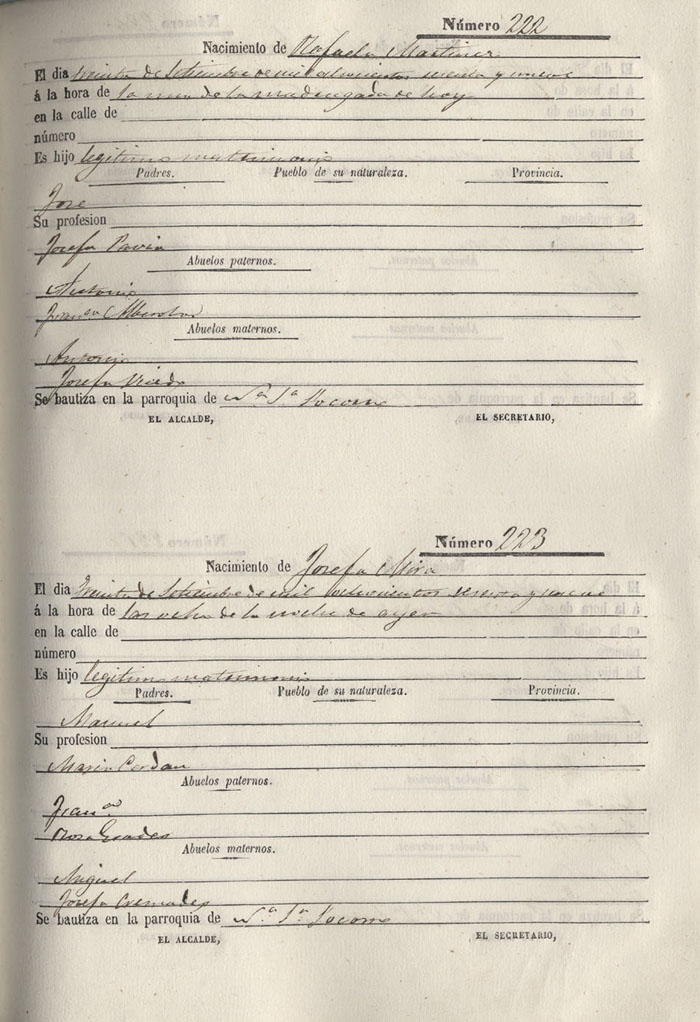 Número 222
Nacimiento de Rafaela Martinez
El dia treinta de Setiembre de mil ochocientos sesenta y nueve
á la hora de la una de la madrugada de hoy
en la calle de
número
Es hijo legitimo matrimonio
Padres. Pueblo de su naturaleza. Provincia.
Jose
Su profesion
Josefa
Abuelos paternos.
Antonio
Abuelos maternos.
Antonio
Josefa
Se bautiza en la parroquia de Nª Sª Socorro
EL ALCALDE, EL SECRETARIO,
Número 223
Nacimiento de Josefa Mira
El dia treinta de Setiembre de mil ochocientos sesenta y nueve
á la hora de las ocho de la noche de ayer
en la calle de
número
Es hijo legitimo matrimonio
Padres. Pueblo de su naturaleza. Provincia.
Manuel
Su profesion
Maria
Abuelos paternos.
Rosa
Abuelos maternos.
Miguel
Josefa Cremades
Se bautiza en la parroquia de Nª Sª Socorro
EL ALCALDE, EL SECRETARIO,